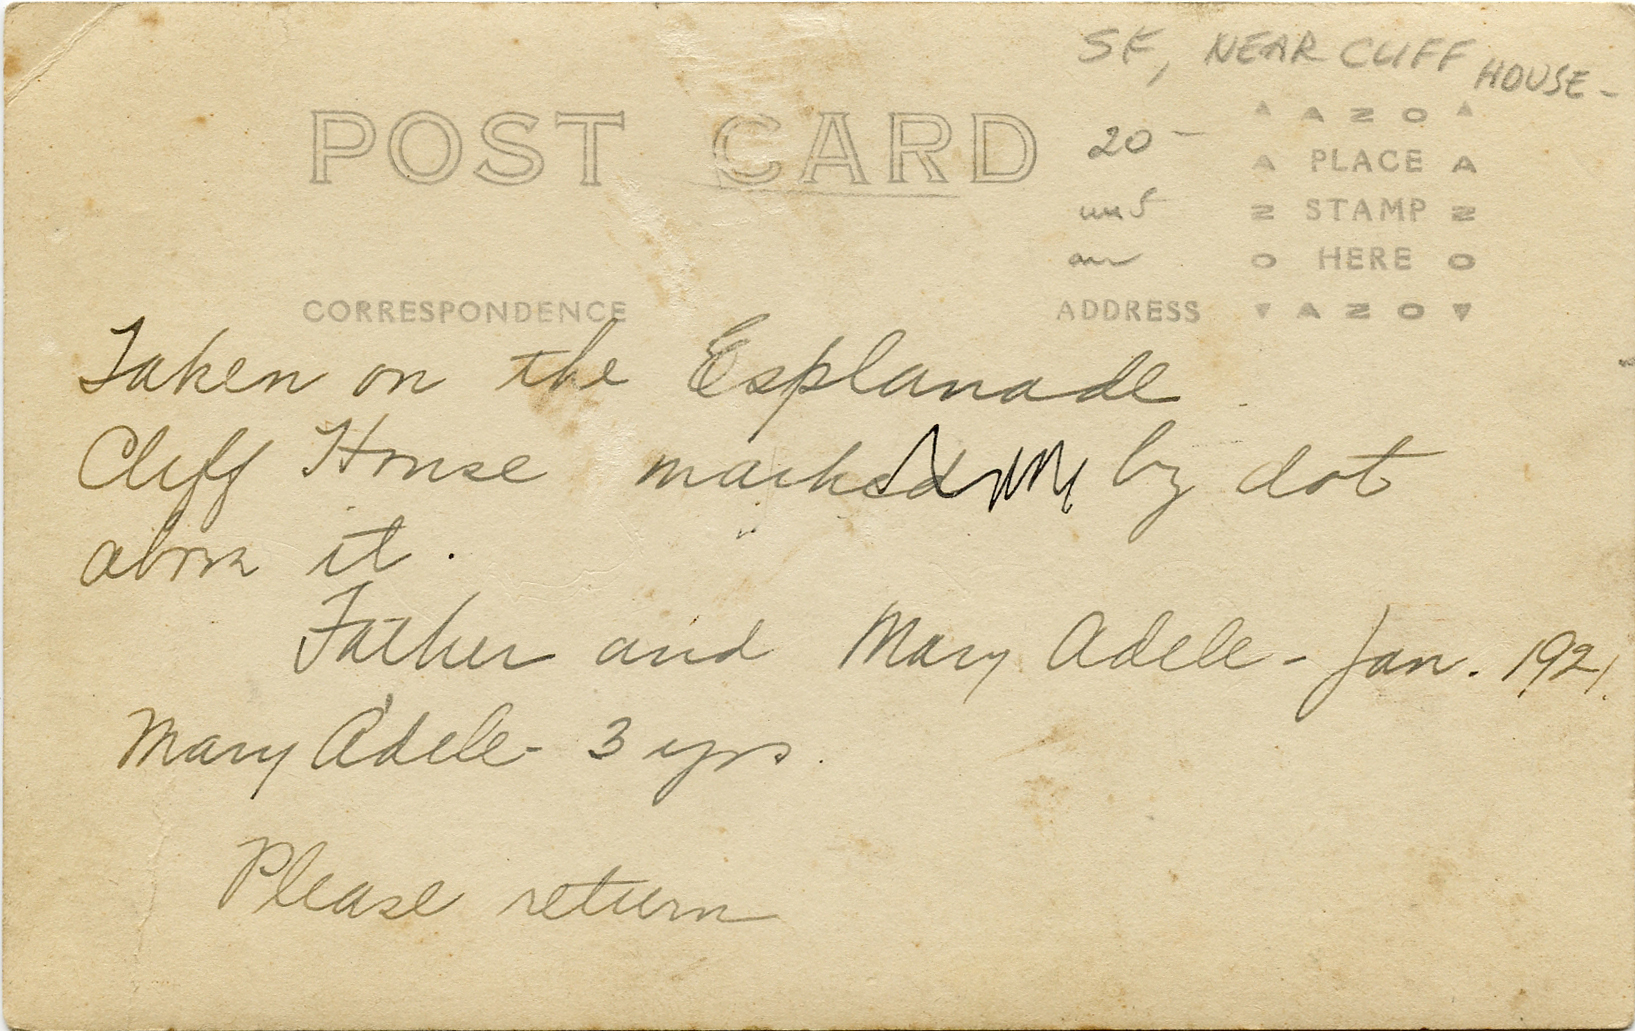 SF, NEAR CLIFF HOUSE -
POST CARD
20 -
▲ A Z O ▲
A PLACE A
Z STAMP Z
O HERE O
▼ A Z O ▼
CORRESPONDENCE
ADDRESS
Taken on the Esplanade
Cliff House marked by dot
above it.
Father and Mary Adele - Jan. 1921.
Mary Adele - 3 yrs.
Please return